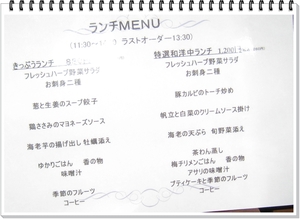 ランチMENU
(11:30~ ラストオーダー13:30)
きっぷうランチ
フレッシュハーブ野菜サラダ
お刺身二種
葱と生姜のスープ餃子
鶏ささみのマヨネーズソース
海老芋の揚げ出し 牡蠣添え
ゆかりごはん 香の物
味噌汁
季節のフルーツ
コーヒー
特選和洋中ランチ
フレッシュハーブ野菜サラダ
お刺身二種
豚カルビのトーチ炒め
帆立と白菜のクリームソース掛け
海老の天ぷら 旬野菜添え
茶わん蒸し
梅チリメンごはん 香の物
アサリの味噌汁
プティケーキと季節のフルーツ
コーヒー